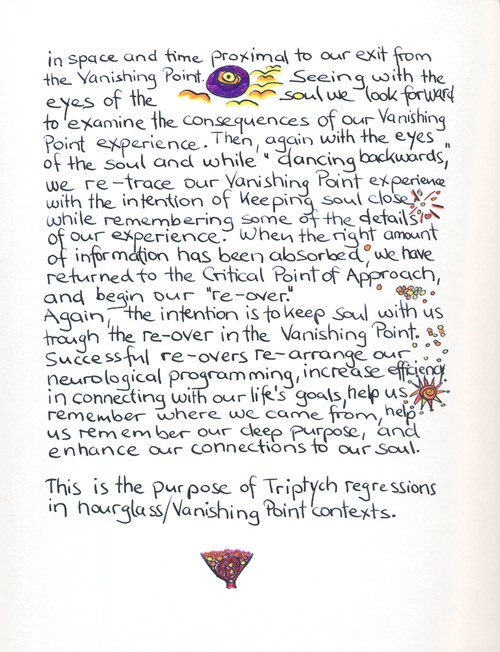 in space and time proximal to our exit from
the Vanishing Point. Seeing with the
eyes of the soul we look forward
to examine the consequences of our Vanishing
Point experience. Then, again with the eyes
of the soul and while "dancing backwards,"
we re-trace our Vanishing Point experience
with the intention of keeping soul close
while remembering some of the details
of our experience. When the right amount
of information has been absorbed, we have
returned to the Critical Point of Approach,
and begin our "re-over."
Again, the intention is to keep soul with us
trough the re-over in the Vanishing Point.
Successful re-overs re-arrange our
neurological programming, increase efficiency
in connecting with our life's goals, help us
remember where we came from, help
us remember our deep purpose, and
enhance our connections to our soul.
This is the purpose of Triptych regressions
in hourglass/Vanishing Point contexts.